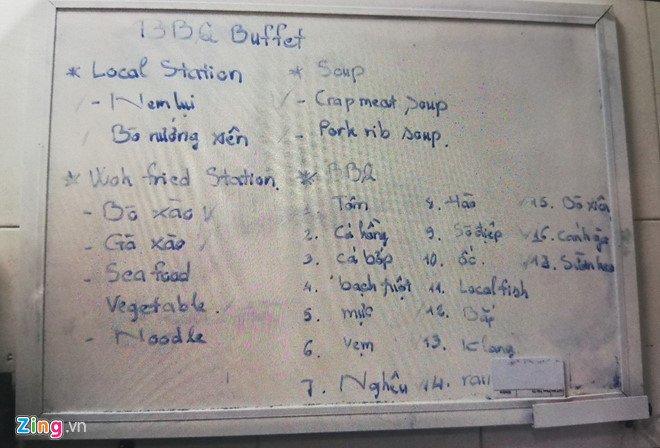 BBQ Buffet
* Local Station
- Nem lụi
Bò nướng xiên
* Woh fried Station.
- Bò xào
- Gà xào
- Seafood
Vegetable.
- Noodle
* Soup
- Crap meat soup
- Pork rib soup.
* BBQ
1. Tôm
2. Cá hồng
3. cá bớp
4. bạch tuột
5. mực
6. Vẹm
7. Nghêu
8. Hàu
9. Sò điệp
10. ốc.
11. Local fish
12. Bắp
13. K lang
14. rau
15. Bò xiên
16. Cánh gà
17. Sườn heo
Zing.vn